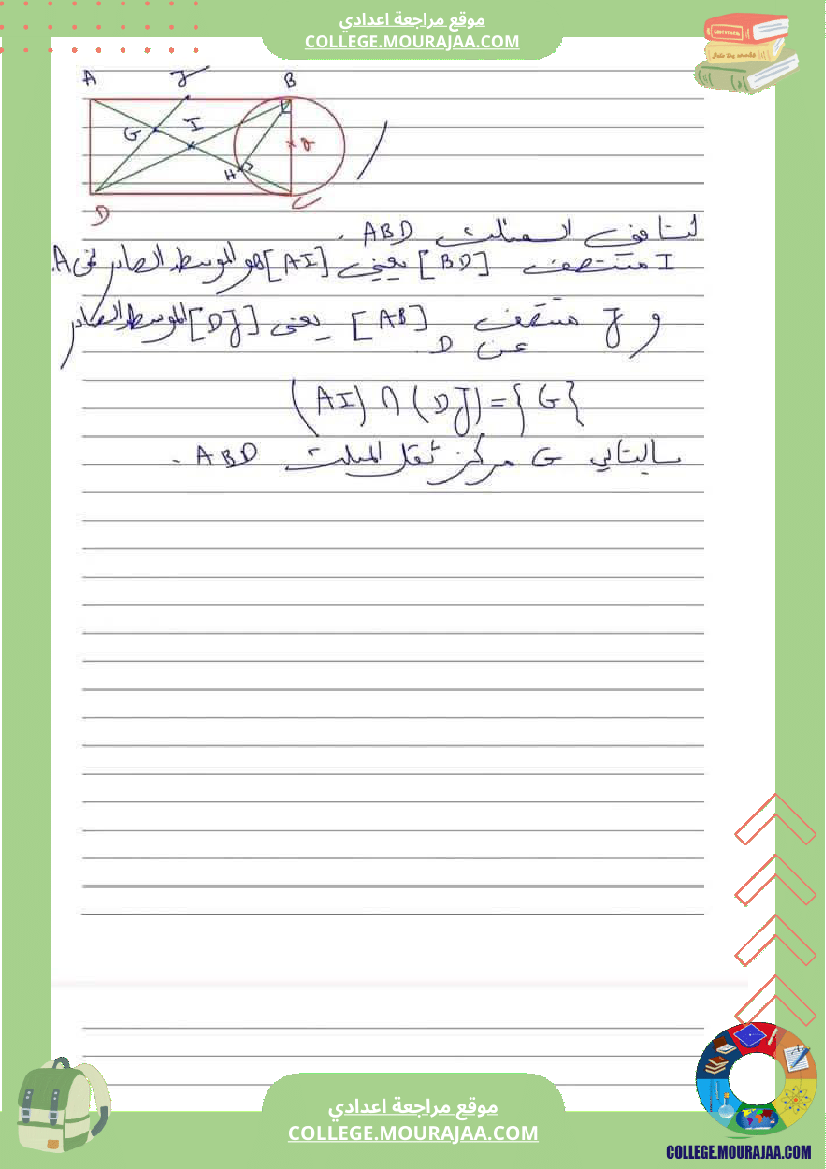 موقع مراجعة اعدادي
COLLEGE.MOURAJAA.COM
A J B
G I
H
D C
لنا في المثلث ABD .
I منتصف [BD] يعني [AI] هو الموسط الصادر من A.
و J منتصف [AB] يعني [DJ] الموسط الصادر
عن D .
(AI) ∩ (DJ) = {G}
بالتالي G مركز ثقل المثلث ABD .
موقع مراجعة اعدادي
COLLEGE.MOURAJAA.COM
COLLEGE.MOURAJAA.COM